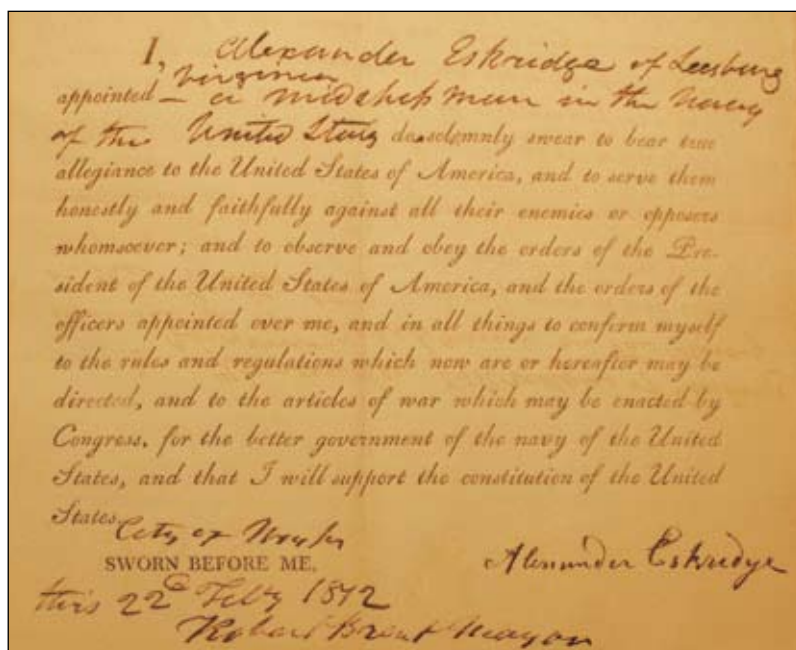 I, Alexander Eskridge of Leesburg
Virginia
appointed – a midshipman in the Navy
of the United States do solemnly swear to bear true
allegiance to the United States of America, and to serve them
honestly and faithfully against all their enemies or opposers
whomsoever; and to observe and obey the orders of the Pre-
sident of the United States of America, and the orders of the
officers appointed over me, and in all things to conform myself
to the rules and regulations which now are or hereafter may be
directed, and to the articles of war which may be enacted by
Congress, for the better government of the navy of the United
States, and that I will support the constitution of the United
States.
City of Wash
SWORN BEFORE ME,
Alexander Eskridge
this 22d Feby 1812
Robert Brent Mayor